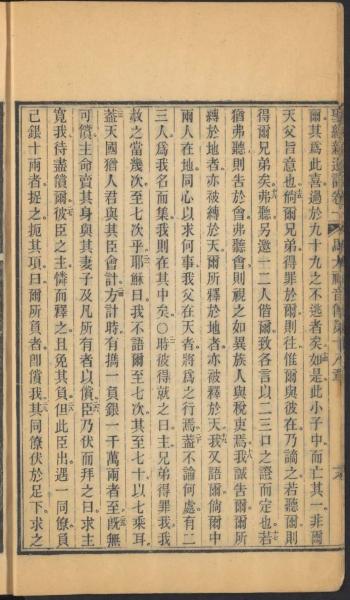 爾其爲此喜過於九十九之不逃者矣如是此小子中而亡其一非爾
天父旨意也倘爾兄弟得罪於爾則往惟爾與彼在乃謫之若聽爾則
得爾兄弟矣弗聽另邀一二人偕爾致各言以二三口之證而定也若
猶弗聽則告於會弗聽會則視之如異族人與稅吏焉我誠告爾爾所
縛於地者亦被縛於天爾所釋於地者亦被釋於天我又語爾倘爾中
兩人在地同心以求何事我父在天者將爲之行焉蓋不論何處有二
三人爲我名而集我則在其中矣〇時彼得就之曰主兄弟得罪我我
赦之當幾次至七次乎耶穌曰我不語爾至七次其至七十以七乘耳
蓋天國猶人君與其臣會計方計時有攜一負銀一千萬兩者至旣無
可償主命賣其身與其妻子及凡所有者以償臣乃伏而拜之曰求主
寬我待盡償爾彼臣之主憐而釋之且免其負但此臣出遇一同僚負
己銀十兩者捉之扼其項曰爾所負者卽償我其同僚伏於足下求之